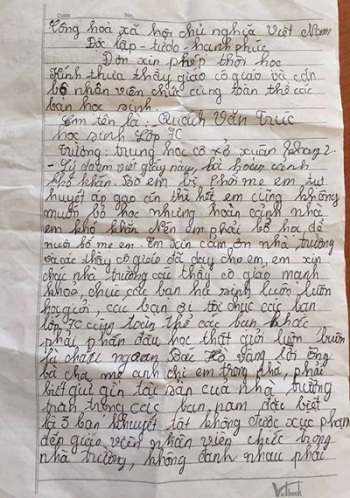 Date No.
Cộng hoà xã hội chủ nghĩa Việt Nam
Độc lập - tự do - hạnh phúc
Đơn xin phép thôi học
Kính thưa thầy giáo cô giáo và cán
bộ nhân viên chức cùng toàn thể các
bạn học sinh.
Em tên là: Quách Văn Trúc
học sinh lớp 7C
Trường: trung học cơ sở xuân
- Lý do em viết giấy này, là hoàn cảnh
khó khăn. Bố em bị phổi mẹ em tụt
huyết áp gạo ăn thì hết em cũng không
muốn bỏ học nhưng hoàn cảnh nhà
em khó khăn nên em phải bỏ học để
nuôi bố mẹ em. Em xin cảm ơn nhà trường
và các thầy cô giáo đã dạy cho em, em xin
chúc nhà trường các thầy cô giáo mạnh
khoẻ, chúc các bạn luôn luôn
học giỏi, các bạn ơi tớ chúc các bạn
lớp 7C cùng toàn thể các bạn khác
phải phấn đấu học thật giỏi luôn luôn
là cháu ngoan Bác Hồ vâng lời ông
bà cha mẹ anh chị em trong nhà, phải
biết giữ gìn tài sản của nhà trường
các bạn, nam đặc biệt
là 3 bạn khuyết tật không được xúc phạm
đến giáo viên nhân viên chức trong
nhà trường, không đánh nhau phải